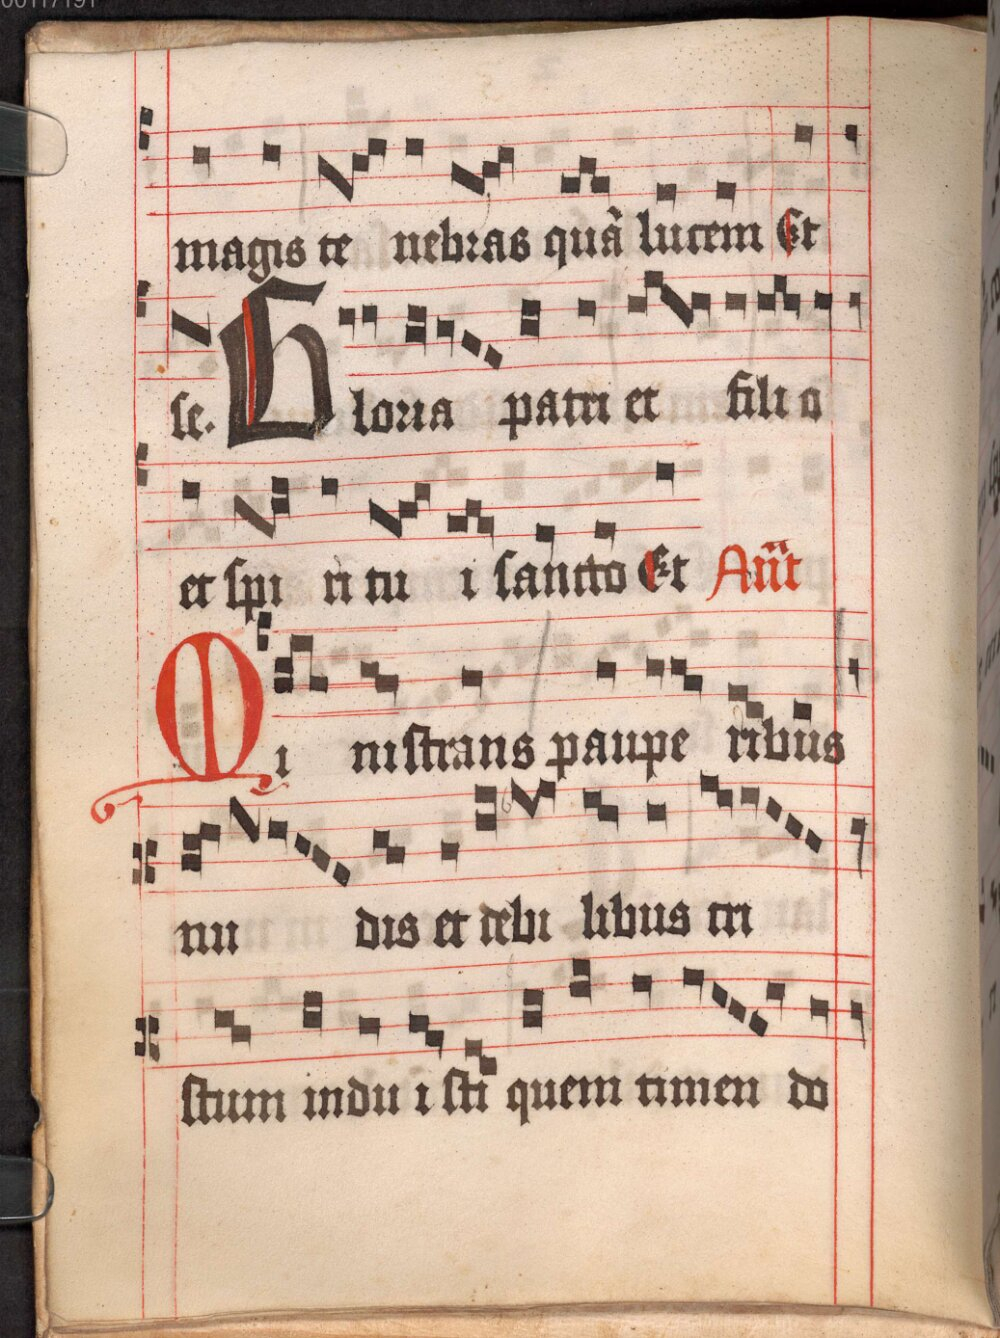 magis te nebras quā lucem Et
se. Gloria patri et filio
et spi ri tu i sancto Et Añt
Mi nistrans paupe ribus
nu dis et debi libus tri
stum indu i sti quem timen do